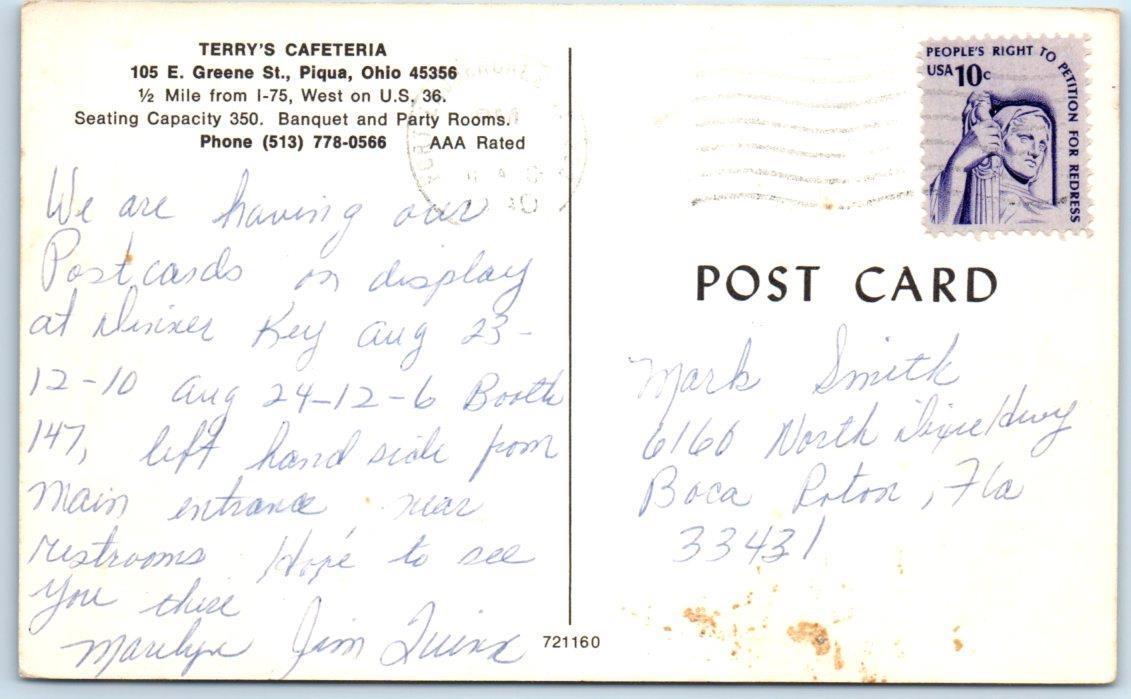 TERRY'S CAFETERIA
105 E. Greene St., Piqua, Ohio 45356
½ Mile from I-75, West on U.S. 36.
Seating Capacity 350. Banquet and Party Rooms.
Phone (513) 778-0566 AAA Rated
We are having our
Postcards on display
at Dinner Key Aug 23-
12-10 Aug 24-12-6 Booth
147, left hand side from
Main entrance near
restrooms Hope to see
you there
Marilyn Jim Quinn
721160
PEOPLE'S RIGHT TO PETITION FOR REDRESS
USA 10c
POST CARD
Mark Smith
6160 North Dixie Hwy
Boca Raton, Fla
33431